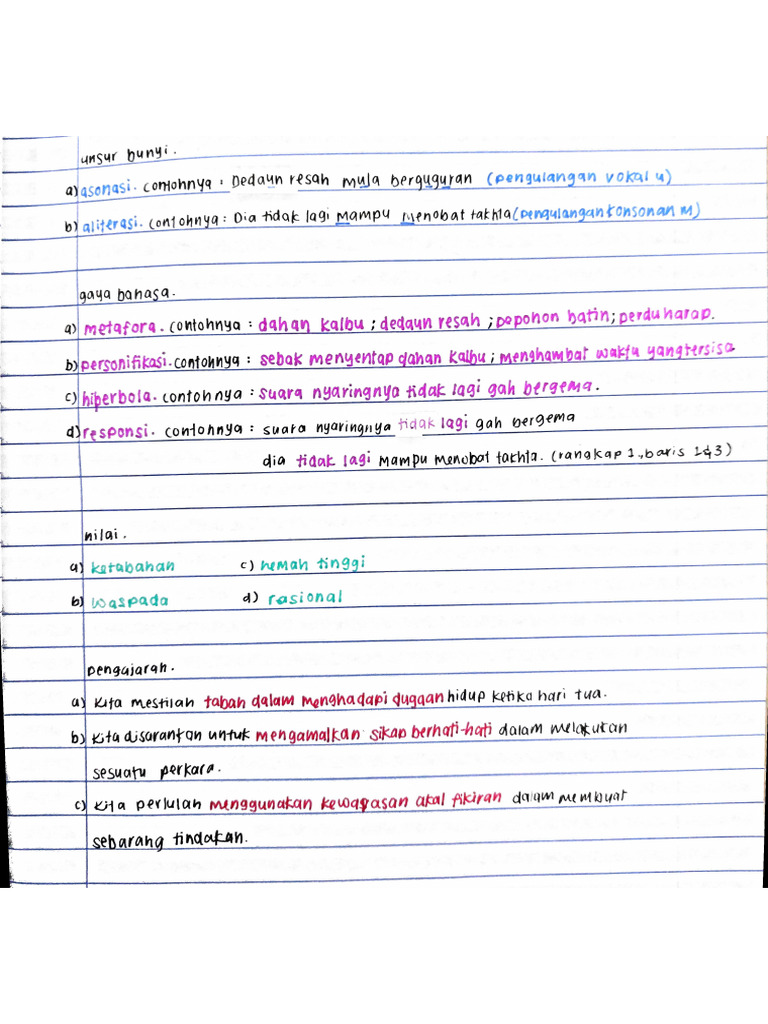 unsur bunyi.
a) asonasi. contohnya : Dedaun resah mula berguguran (pengulangan vokal u)
b) aliterasi. contohnya : Dia tidak lagi mampu menobat takhta (pengulangan konsonan M)
gaya bahasa.
a) metafora. contohnya : dahan kalbu ; dedaun resah ; pepohon batin; perdu harap.
b) personifikasi. contohnya : sebak menyentap dahan kalbu ; menghambat waktu yang tersisa
c) hiperbola. contohnya : suara nyaringnya tidak lagi gah bergema.
d) responsi. contohnya : suara nyaringnya tidak lagi gah bergema
dia tidak lagi mampu menobat takhta. (rangkap 1, baris 1&3)
nilai.
a) ketabahan c) hemah tinggi
b) waspada d) rasional
pengajaran.
a) Kita mestilah tabah dalam menghadapi dugaan hidup ketika hari tua.
b) Kita disarankan untuk mengamalkan sikap berhati-hati dalam melakukan
sesuatu perkara.
c) Kita perlulah menggunakan kewarasan akal fikiran dalam membuat
sebarang tindakan.